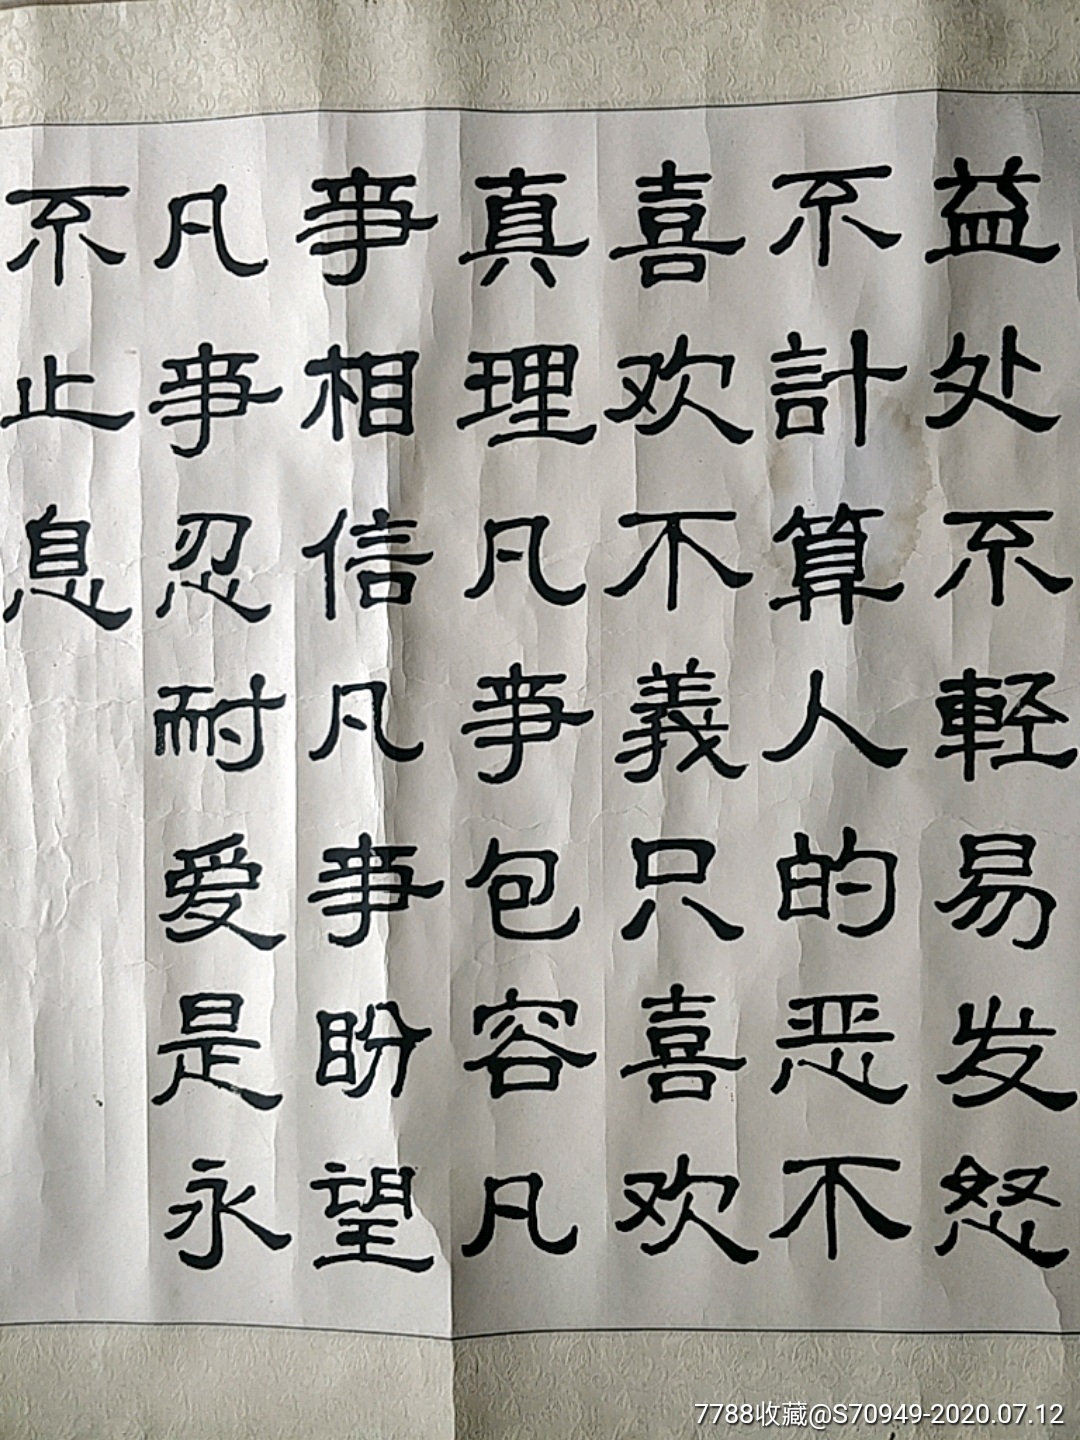 益处不輕易发怒
不計算人的恶不
喜欢不義只喜欢
真理凡事包容凡
事相信凡事盼望
凡事忍耐爱是永
不止息
7788收藏@S70949-2020.07.12